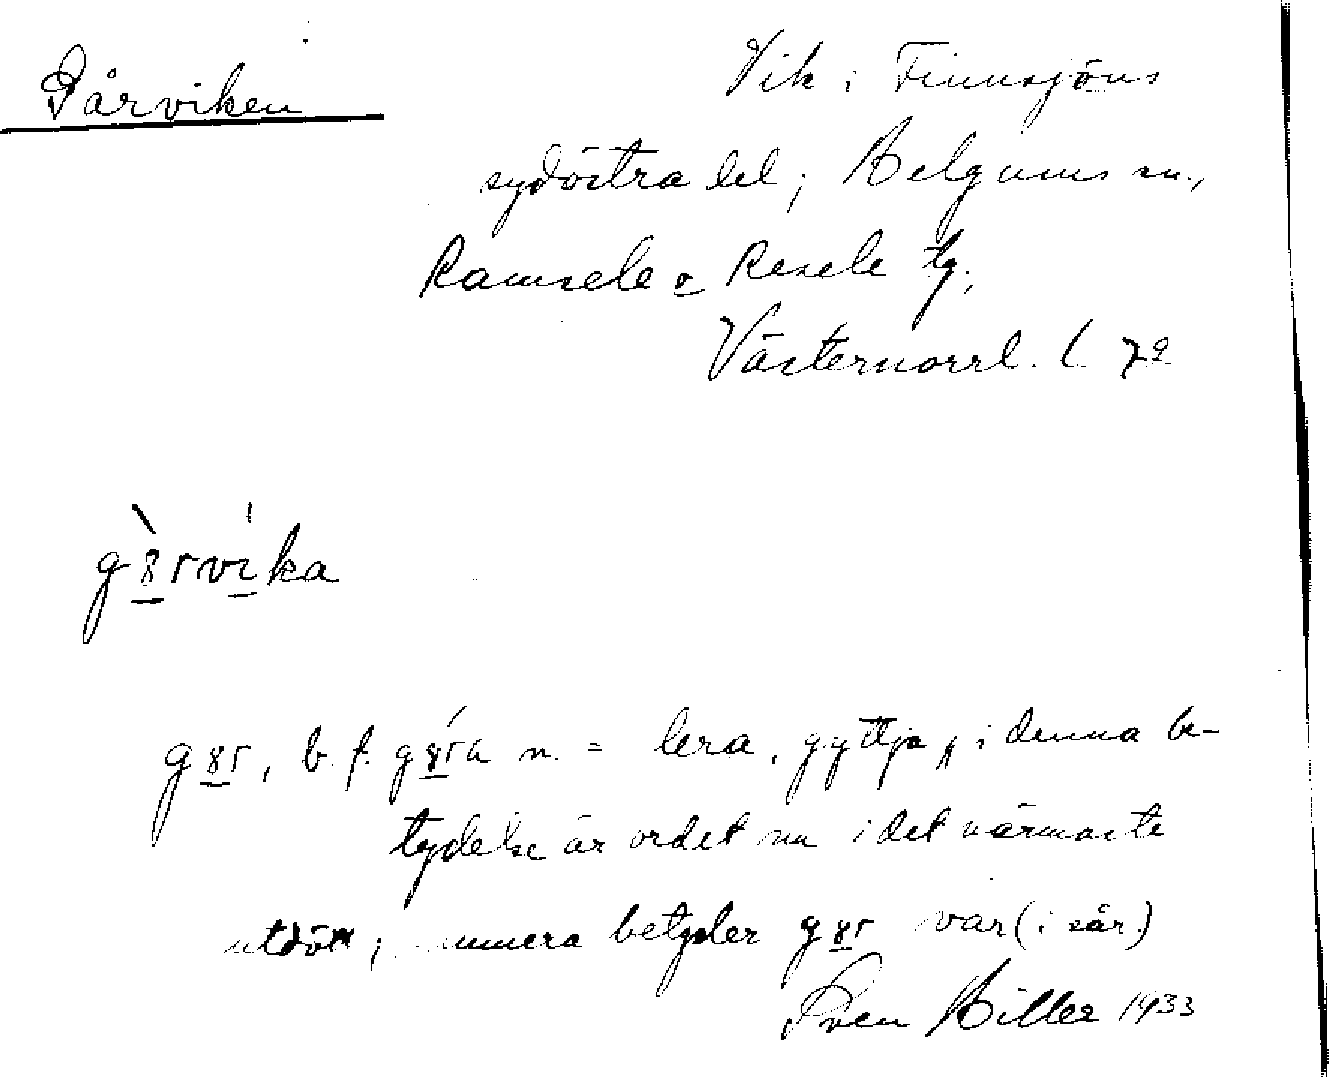 Gårviken
Vik i Finnsjöns
sydöstra del; Helgums sn.,
Ramsele o Resele tg.,
Västernorrl. l
gȣrvika
gȣr, b. f. gȣ́ra n. = lera, gyttja, i denna be-
tydelse är ordet nu i det närmaste
utdött; numera betyder gȣr var (i sår)
Sven Hiller 1933